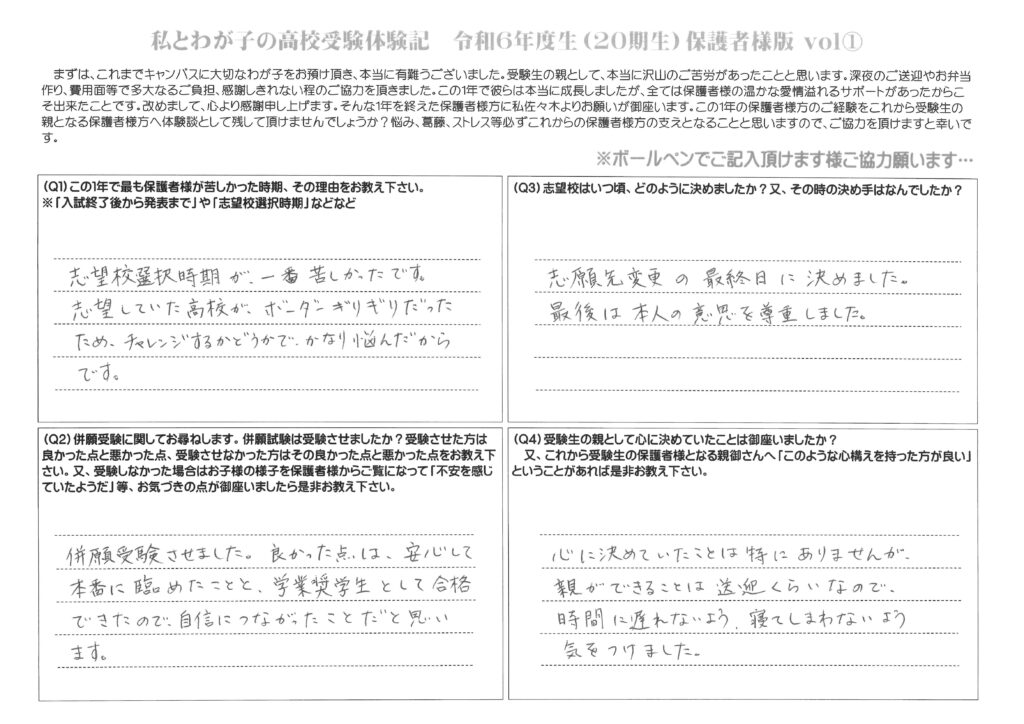 私とわが子の高校受験体験記　令和6年度生（20期生）保護者様版 vol①
まずは、これまでキャンパスに大切なわが子をお預け頂き、本当に有難うございました。受験生の親として、本当に沢山のご苦労があったことと思います。深夜のご送迎やお弁当
作り、費用面等で多大なるご負担、感謝しきれない程のご協力を頂きました。この1年で彼らは本当に成長しましたが、全ては保護者様の温かな愛情溢れるサポートがあったからこ
そ出来たことです。改めまして、心より感謝申し上げます。そんな1年を終えた保護者様方に私佐々木よりお願いが御座います。この1年の保護者様方のご経験をこれから受験生の
親となる保護者様方へ体験談として残して頂けませんでしょうか？悩み、葛藤、ストレス等必ずこれからの保護者様方の支えとなることと思いますので、ご協力を頂けますと幸いで
す。
※ボールペンでご記入頂けます様ご協力願います…
（Q1）この1年で最も保護者様が苦しかった時期、その理由をお教え下さい。
※「入試終了後から発表まで」や「志望校選択時期」などなど
志望校選択時期が、一番苦しかったです。
志望していた高校が、ボーダーギリギリだった
ため、チャレンジするかどうかで、かなり悩んだから
です。
（Q3）志望校はいつ頃、どのように決めましたか？又、その時の決め手はなんでしたか？
志願先変更の最終日に決めました。
最後は本人の意思を尊重しました。
（Q2）併願受験に関してお尋ねします。併願試験は受験させましたか？受験させた方は
良かった点と悪かった点、受験させなかった方はその良かった点と悪かった点をお教え下
さい。又、受験しなかった場合はお子様の様子を保護者様からご覧になって「不安を感じ
ていたようだ」等、お気づきの点が御座いましたら是非お教え下さい。
併願受験させました。良かった点は、安心して
本番に臨めたことと、学業奨学生として合格
できたので、自信につながったことだと思い
ます。
（Q4）受験生の親として心に決めていたことは御座いましたか？
又、これから受験生の保護者様となる親御さんへ「このような心構えを持った方が良い」
ということがあれば是非お教え下さい。
心に決めていたことは特にありませんが、
親ができることは送迎くらいなので、
時間に遅れないよう、寝てしまわないよう
気をつけました。